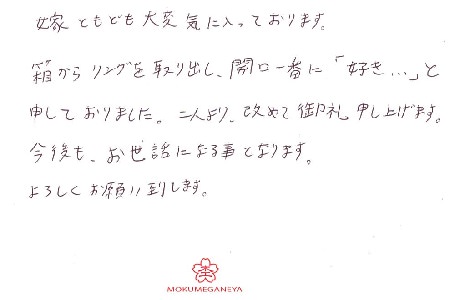 嫁ともども大変気に入っております。
箱からリングを取り出し、開口一番に「好き...」と
申しておりました。二人より、改めて御礼申し上げます。
今後も、お世話になる事となります。
よろしくお願い致します。
MOKUMEGANEYA